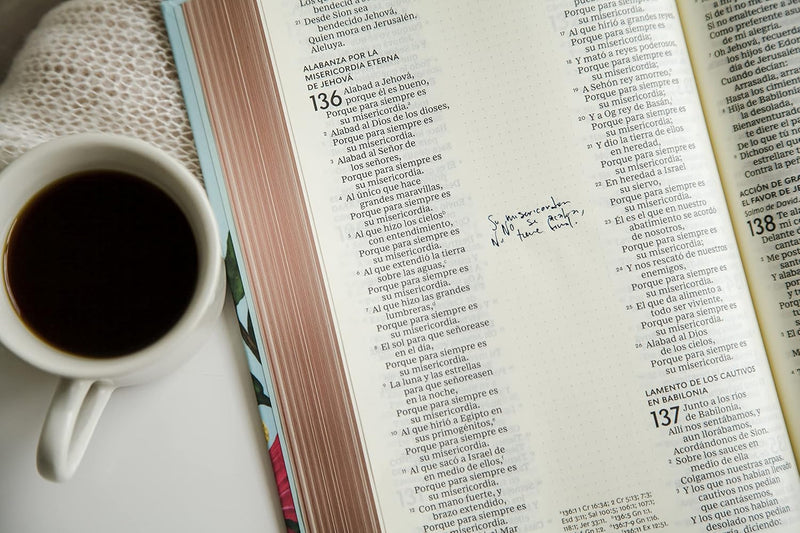 21 Desde Sion sea
bendecido Jehová,
Quien mora en Jerusalén.
Aleluya.
ALABANZA POR LA
MISERICORDIA ETERNA
DE JEHOVÁ
136 Alabad a Jehová,
porque él es bueno,
Porque para siempre es
su misericordia.a
2 Alabad al Dios de los dioses,
Porque para siempre es
su misericordia.
3 Alabad al Señor de
los señores,
Porque para siempre es
su misericordia.
4 Al único que hace
grandes maravillas,
Porque para siempre es
su misericordia.
5 Al que hizo los cielosb
con entendimiento,
Porque para siempre es
su misericordia.
6 Al que extendió la tierra
sobre las aguas,c
Porque para siempre es
su misericordia.
7 Al que hizo las grandes
lumbreras,d
Porque para siempre es
su misericordia.
8 El sol para que señorease
en el día,
Porque para siempre es
su misericordia.
9 La luna y las estrellas
para que señoreasen
en la noche,
Porque para siempre es
su misericordia.
10 Al que hirió a Egipto en
sus primogénitos,e
Porque para siempre es
su misericordia.
11 Al que sacó a Israel de
en medio de ellos,f
Porque para siempre es
su misericordia.
12 Con mano fuerte, y
brazo extendido,
Porque para siempre es
su misericordia.
Su misericordia
No se acaba,
No tiene final.
Porque para siempre es
su misericordia.
17 Al que hirió a grandes reyes,
Porque para siempre es
su misericordia;
18 Y mató a reyes poderosos,
Porque para siempre es
su misericordia;
19 A Sehón rey amorreo,g
Porque para siempre es
su misericordia;
20 Y a Og rey de Basán,h
Porque para siempre es
su misericordia;
21 Y dio la tierra de ellos
en heredad,
Porque para siempre es
su misericordia;
22 En heredad a Israel
su siervo,
Porque para siempre es
su misericordia.
23 Él es el que en nuestro
abatimiento se acordó
de nosotros,
Porque para siempre es
su misericordia;
24 Y nos rescató de nuestros
enemigos,
Porque para siempre es
su misericordia.
25 El que da alimento a
todo ser viviente,
Porque para siempre es
su misericordia.
26 Alabad al Dios
de los cielos,
Porque para siempre es
su misericordia.
LAMENTO DE LOS CAUTIVOS
EN BABILONIA
137 Junto a los ríos
de Babilonia,
Allí nos sentábamos, y
aun llorábamos,
Acordándonos de Sion.
2 Sobre los sauces en
medio de ella
Colgamos nuestras arpas.
3 Y los que nos habían llevado
cautivos nos pedían
que cantásemos,
Y los que nos habían
desolado nos pedían
alegría, diciendo:
a136:1 Cr 16:34; 2 Cr 5:13; 7:3;
Esd 3:11; Sal 100:5; 106:1; 107:1;
118:1; Jer 33:11. b136:5 Gn 1:1.
c136:6 Gn 1:2. d136:7-9 Gn 1:16.
e136:10 Ex 12:29. f136:11 Ex 12:51.
Si de ti no me
Si no enalteciere a
Como preferente as
de mi alegría.
7 Oh Jehová, recuerda
los hijos de Edom
día de Jerusalén
Cuando decían
Arrasadla, arra
Hasta los cimientos
8 Hija de Babilonia
la desolada,
Bienaventurad
te diere el pa
De lo que tú no
9 Dichoso el que
estrellare tu
Contra la pe
ACCIÓN DE GRA
EL FAVOR DE J
Salmo de David
138 Te alab
mi co
Delante